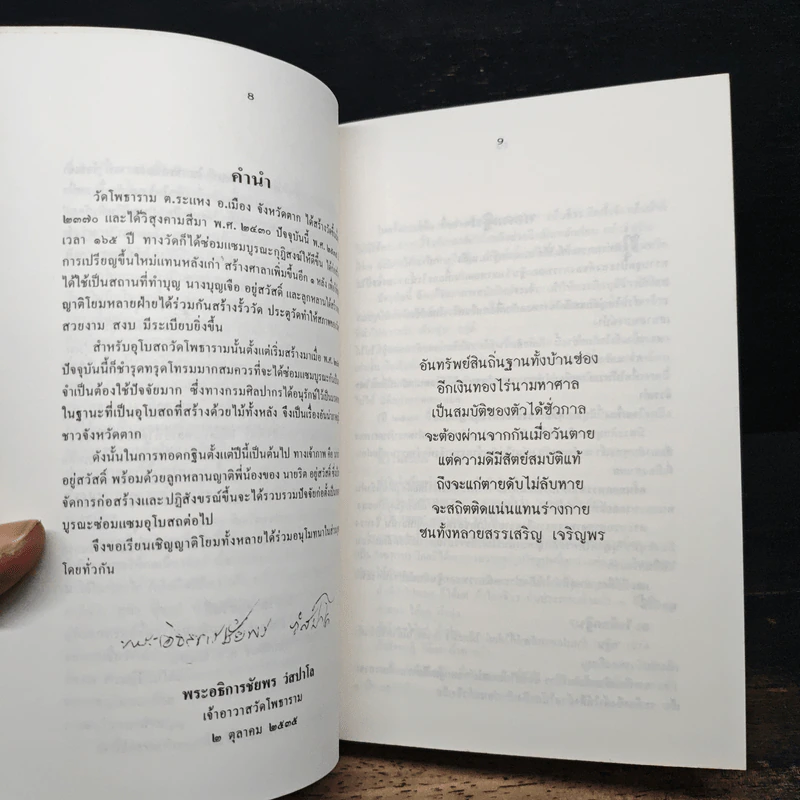 8
คำนำ
วัดโพธาราม ต.ระแหง อ.เมือง จังหวัดตาก ได้สร้างวัด
๒๓๗๐ และได้วิสุงคามสีมา พ.ศ. ๒๔๓๐ ปัจจุบันนี้ พ.ศ.
เวลา ๑๖๕ ปี ทางวัดก็ได้ซ่อมแซมบูรณะกุฏิสงฆ์ให้ดีขึ้น
การเปรียญขึ้นใหม่แทนหลังเก่า สร้างศาลาเพิ่มขึ้นอีก ๑ หลัง
ได้ใช้เป็นสถานที่ทำบุญ นางบุญเจือ อยู่สวัสดิ์ และลูกหลาน
ญาติโยมหลายฝ่ายได้ร่วมกันสร้างรั้ววัด ประตูวัดทำให้
สวยงาม สงบ มีระเบียบยิ่งขึ้น
สำหรับอุโบสถวัดโพธารามนั้นตั้งแต่เริ่มสร้างมาเมื่อ พ.ศ.
ปัจจุบันนี้ก็ชำรุดทรุดโทรมมากสมควรที่จะได้ซ่อมแซมบูรณะกัน
จำเป็นต้องใช้ปัจจัยมาก ซึ่งทางกรมศิลปากรได้อนุรักษ์ไว้
ในฐานะที่เป็นอุโบสถที่สร้างด้วยไม้ทั้งหลัง จึงเป็นเรื่อง
ชาวจังหวัดตาก
ดังนั้นในการทอดกฐินตั้งแต่ปีนี้เป็นต้นไป ทางเจ้าภาพ คือ
อยู่สวัสดิ์ พร้อมด้วยลูกหลานญาติพี่น้องของ นายริด อยู่สวัสดิ์
จัดการก่อสร้างและ ปฏิสังขรณ์ขึ้นจะได้รวบรวมปัจจัย
บูรณะซ่อมแซมอุโบสถต่อไป
จึงขอเรียนเชิญญาติโยมทั้งหลายได้ร่วมอนุโมทนา
โดยทั่วกัน
พระอธิการชัยพร วํสปาโล
พระอธิการชัยพร วํสปาโล
เจ้าอาวาสวัดโพธาราม
๒ ตุลาคม ๒๕๓๕
9
อันทรัพย์สินถิ่นฐานทั้งบ้านช่อง
อีกเงินทองไร่นามหาศาล
เป็นสมบัติของตัวได้ชั่วกาล
จะต้องผ่านจากกันเมื่อวันตาย
แต่ความดีมีสัตย์สมบัติแท้
ถึงจะแก่ตายดับไม่ลับหาย
จะสถิตติดแน่นแทนร่างกาย
ชนทั้งหลายสรรเสริญ เจริญพร